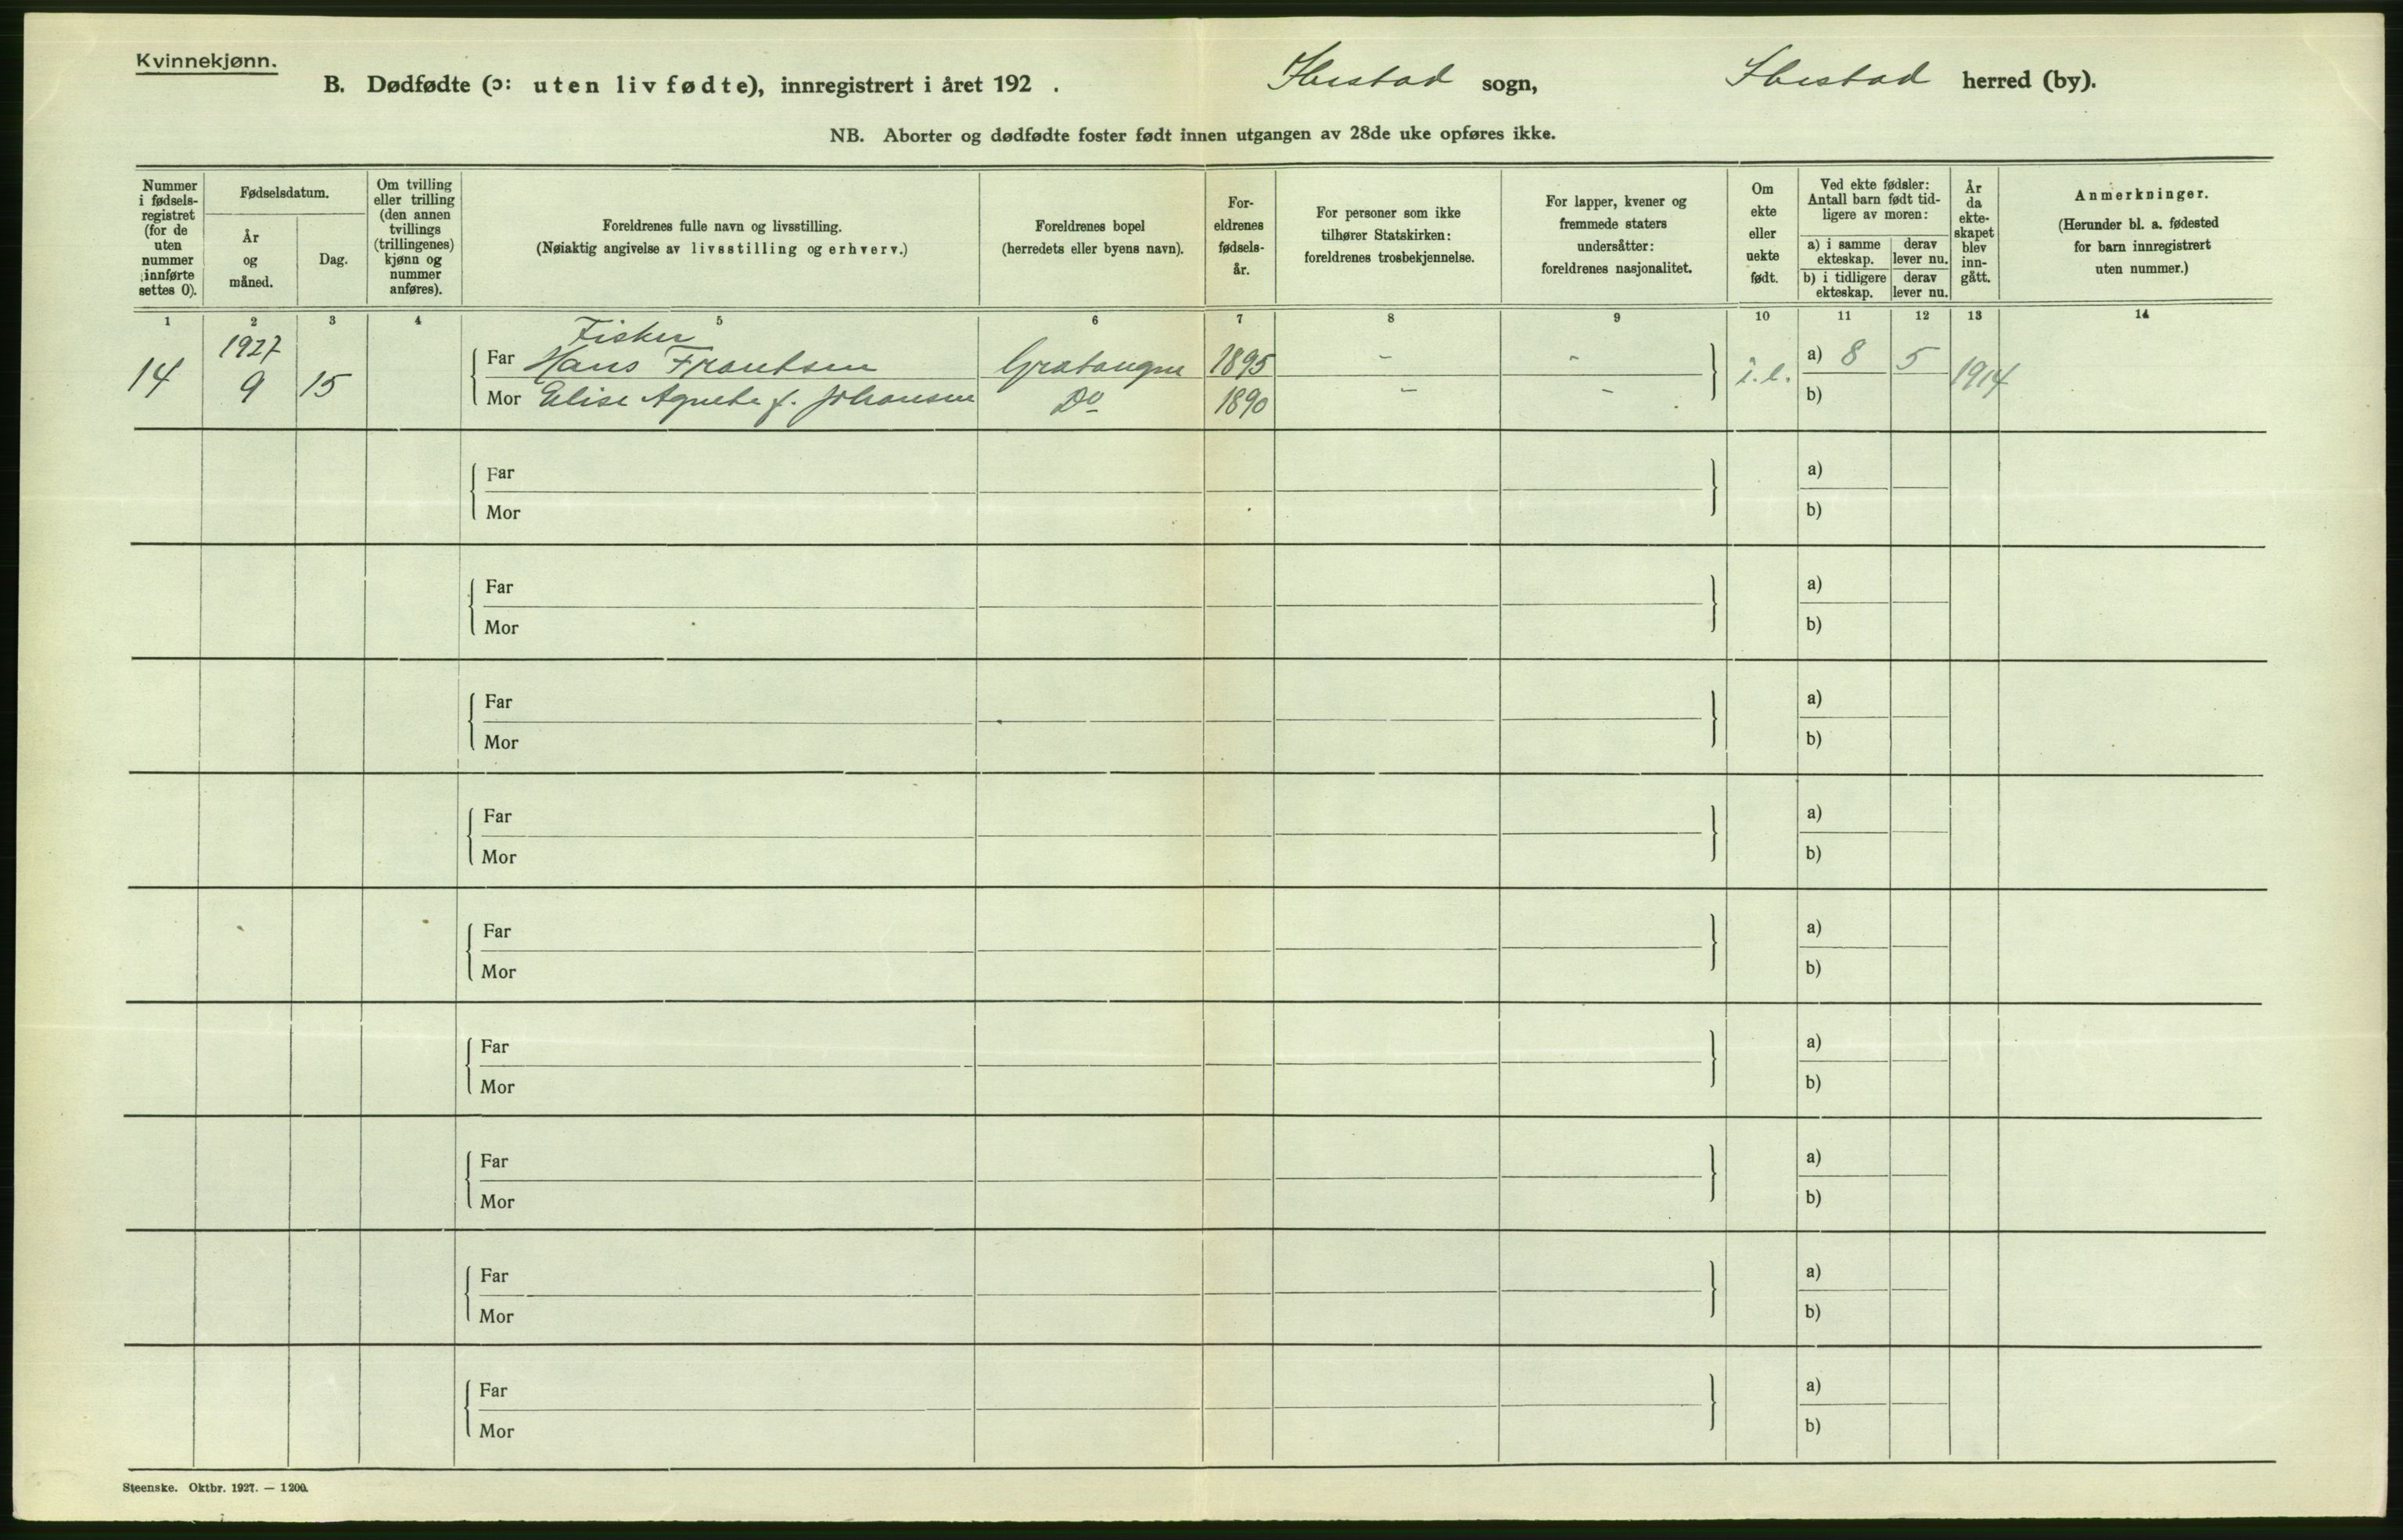 Kvinnekjønn.
B. Dødfødte (ɔ: uten liv fødte), innregistrert i året 192 . Ibestad sogn, Ibestad herred (by).
NB. Aborter og dødfødte foster født innen utgangen av 28de uke opføres ikke.
Nummer
i fødsels-
registret
(for de
uten
nummer
innførte
settes 0).
Fødselsdatum.
År
og
måned.
Dag.
Om tvilling
eller trilling
(den annen
tvillings
(trillingenes)
kjønn og
nummer
anføres).
Foreldrenes fulle navn og livsstilling.
(Nøiaktig angivelse av livsstilling og erhverv.)
Foreldrenes bopel
(herredets eller byens navn).
For-
eldrenes
fødsels-
år.
For personer som ikke
tilhører Statskirken:
foreldrenes trosbekjennelse.
For lapper, kvener og
fremmede staters
undersåtter:
foreldrenes nasjonalitet.
Om
ekte
eller
uekte
født.
Ved ekte fødsler:
Antall barn født tid-
ligere av moren:
a) i samme
ekteskap.
derav
lever nu.
b) i tidligere
ekteskap.
derav
lever nu.
År
da
ekte-
skapet
blev
inn-
gått.
Anmerkninger.
(Herunder bl. a. fødested
for barn innregistrert
uten nummer.)
1 2 3 4 5 6 7 8 9 10 11 12 13 14
Fisker
1927
Far Hans Frantsen Gratangen 1895 - - a) 8 5
14 9 15 i.e. 1914
Mor Elise Agnete f. Johansen Do 1890 - - b)
Far a)
Mor b)
Far a)
Mor b)
Far a)
Mor b)
Far a)
Mor b)
Far a)
Mor b)
Far a)
Mor b)
Far a)
Mor b)
Far a)
Mor b)
Far a)
Mor b)
Steenske. Oktbr. 1927. — 1200.